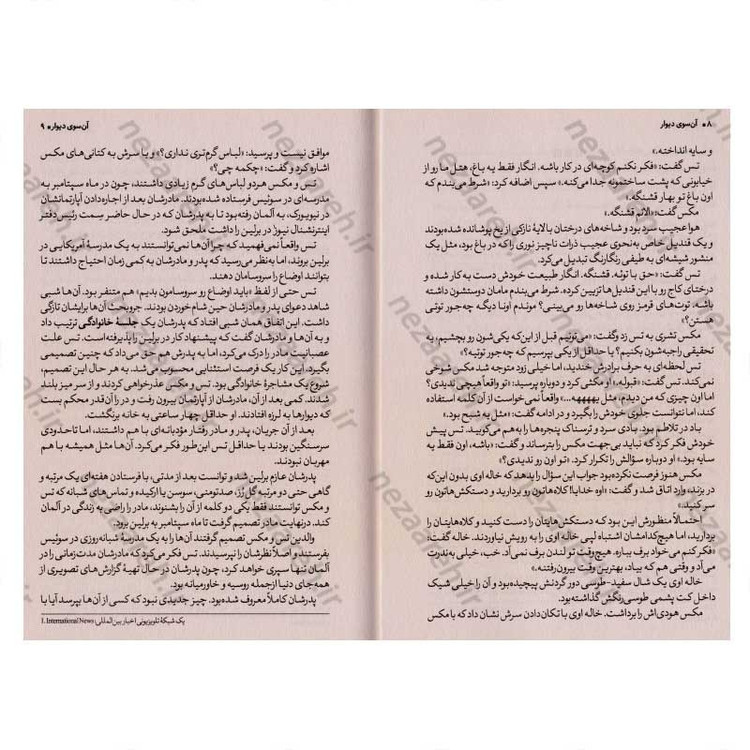 ۸ ● آن‌سوی دیوار
و سایه انداخته.»
تس گفت: «فکر نکنم کوچه‌ای در کار باشه. انگار فقط یه باغ، هتل ما رو از
خیابونی که پشت ساختمونه جدا می‌کنه.» سپس اضافه کرد: «شرط می‌بندم که
اون باغ تو بهار قشنگه.»
مکس گفت: «الانم قشنگه.»
هوا عجیب سرد بود و شاخه‌های درختان با لایهٔ نازکی از یخ پوشانده شده‌بودند
و یک قندیل خاص به‌نحوی عجیب ذرات ناچیز نوری را که در باغ بود، مثل یک
منشور شیشه‌ای به طیفی رنگارنگ تبدیل می‌کرد.
تس گفت: «حق با توئه. قشنگه. انگار طبیعت خودش دست به کار شده و
درختای کاج رو با این قندیل‌ها تزیین کرده. شرط می‌بندم مامان دوستشون داشته
باشه. توت‌های قرمز روی شاخه‌ها رو می‌بینی؟ موندم اونا دیگه چه‌جور توتی
هستن؟»
مکس تشری به تس زد و گفت: «می‌تونیم قبل از این‌که یکی‌شون رو بچشیم، یه
تحقیقی راجبه‌شون بکنیم؟ یا حداقل از یکی بپرسیم که چه‌جور توتیه؟»
تس لحظه‌ای به حرف برادرش خندید، اما خیلی زود متوجه شد مکس شوخی
نمی‌کند. تس گفت: «قبوله.» او مکثی کرد و دوباره پرسید: «تو واقعاً هیچی ندیدی؟
اما اون چیزی که من دیدم، مثل یهههههه...» واقعاً نمی‌خواست از آن کلمه استفاده
کند، اما نتوانست جلوی خودش را بگیرد و در ادامه گفت: «مثل یه شبح بود.»
باد در تلاطم بود. بادی سرد و ترسناک پنجره‌ها را به‌هم می‌کوبید. تس پیش
خودش فکر کرد که نباید بی‌جهت مکس را بترساند و گفت: «باشه، اون فقط یه
سایه بود.» او دوباره سؤالش را تکرار کرد. «تو اون رو ندیدی؟»
مکس هنوز فرصت نکرده‌بود جواب این سؤال را بدهد که خاله اوی بدون این‌که
در بزند، وارد اتاق شد و گفت: «اوه خدایا! کلاه‌هاتون رو بردارید و دستکش‌هاتون رو
سر کنید.»
احتمالاً منظورش این بود که دستکش‌هایتان را دست کنید و کلاه‌هایتان را
بردارید، اما هیچ‌کدامشان اشتباه لپی خاله اوی را به رویش نیاوردند. خاله گفت:
«فکر کنم می‌خواد برف بباره. هیچ‌وقت تو لندن برف نمی‌آد. خب، خیلی به‌ندرت
می‌آد و وقتی هم که بیاد، بهترین وقت بیرون‌رفتنه.»
خاله اوی یک شال سفید-طوسی دور گردنش پیچیده‌بود و آن را خیلی شیک
داخل کت پشمی طوسی‌رنگش گذاشته‌بود.
مکس هودی‌اش را برداشت. خاله اوی با تکان‌دادن سرش نشان داد که با مکس
آن‌سوی دیوار ● ۹
موافق نیست و پرسید: «لباس گرم‌تری نداری؟» و با سرش به کتانی‌های مکس
اشاره کرد و گفت: «چکمه چی؟»
تس و مکس هردو لباس‌های گرم زیادی داشتند، چون در ماه سپتامبر به
مدرسه‌ای در سوئیس فرستاده شده‌بودند. مادرشان بعد از اجاره‌دادن آپارتمانشان
در نیویورک، به آلمان رفته‌بود تا به پدرشان که در حال حاضر سِمت رئیس دفتر
اینترنشنال نیوز۱ در برلین را داشت ملحق شود.
تس واقعاً نمی‌فهمید که چرا آن‌ها نمی‌توانستند به یک مدرسهٔ آمریکایی در
برلین بروند، اما به‌نظر می‌رسید که پدر و مادرشان به کمی زمان احتیاج داشتند تا
بتوانند اوضاع را سروسامان دهند.
تس حتی از لفظ «باید اوضاع رو سروسامون بدیم» هم متنفر بود. آن‌ها شبی
شاهد دعوای پدر و مادرشان حین شام خوردن بودند. جروبحث آن‌ها برایشان تازگی
داشت. این اتفاق همان شبی افتاد که پدرشان یک جلسهٔ خانوادگی ترتیب داد
و به آن‌ها و مادرشان گفت که پیشنهاد کار در برلین را پذیرفته‌است. تس علت
عصبانیت مادر را درک می‌کرد، اما به پدرش هم حق می‌داد که چنین تصمیمی
بگیرد، این کار یک فرصت استثنایی محسوب می‌شد. به هر حال این تصمیم،
شروع یک مشاجرهٔ خانوادگی بود. تس و مکس عذرخواهی کردند و از سر میز بلند
شدند. کمی بعد از آن، مادرشان از آپارتمان بیرون رفت و در را آن‌قدر محکم بست
که دیوارها به لرزه افتادند. او حداقل چهار ساعتی به خانه برنگشت.
بعد از آن جریان، پدر و مادر رفتار مؤدبانه‌ای با هم داشتند، اما تاحدودی
سرسنگین بودند. یا حداقل تس این‌طور فکر می‌کرد. آن‌ها مثل همیشه با هم
مهربان نبودند.
پدرشان عازم برلین شد و توانست بعد از مدتی، با فرستادن هفته‌ای یک مرتبه و
گاهی حتی دو مرتبه گل رُز، صدتومنی، سوسن یا ارکیده و تماس‌های شبانه که تس
و مکس توانستند فقط یکی دو کلمه از آن را بشنوند، مادر را راضی به زندگی در آلمان
کند. درنهایت مادر تصمیم گرفت تا ماه سپتامبر به برلین برود.
والدین تس و مکس تصمیم گرفتند آن‌ها را به یک مدرسهٔ شبانه‌روزی در سوئیس
بفرستند و اصلاً نظرشان را نپرسیدند. تس فکر می‌کرد که مادرشان مدت‌زمانی را در
آلمان تنها سپری خواهد کرد، چون پدرشان در حال تهیهٔ گزارش‌های تصویری از
همه‌جای دنیا ازجمله روسیه و خاورمیانه بود.
پدرشان کاملاً معروف شده‌بود. چیز جدیدی نبود که کسی از آن‌ها بپرسد آیا با
1. International News یک شبکهٔ تلویزیونی اخبار بین‌المللی
nezaareh.ir